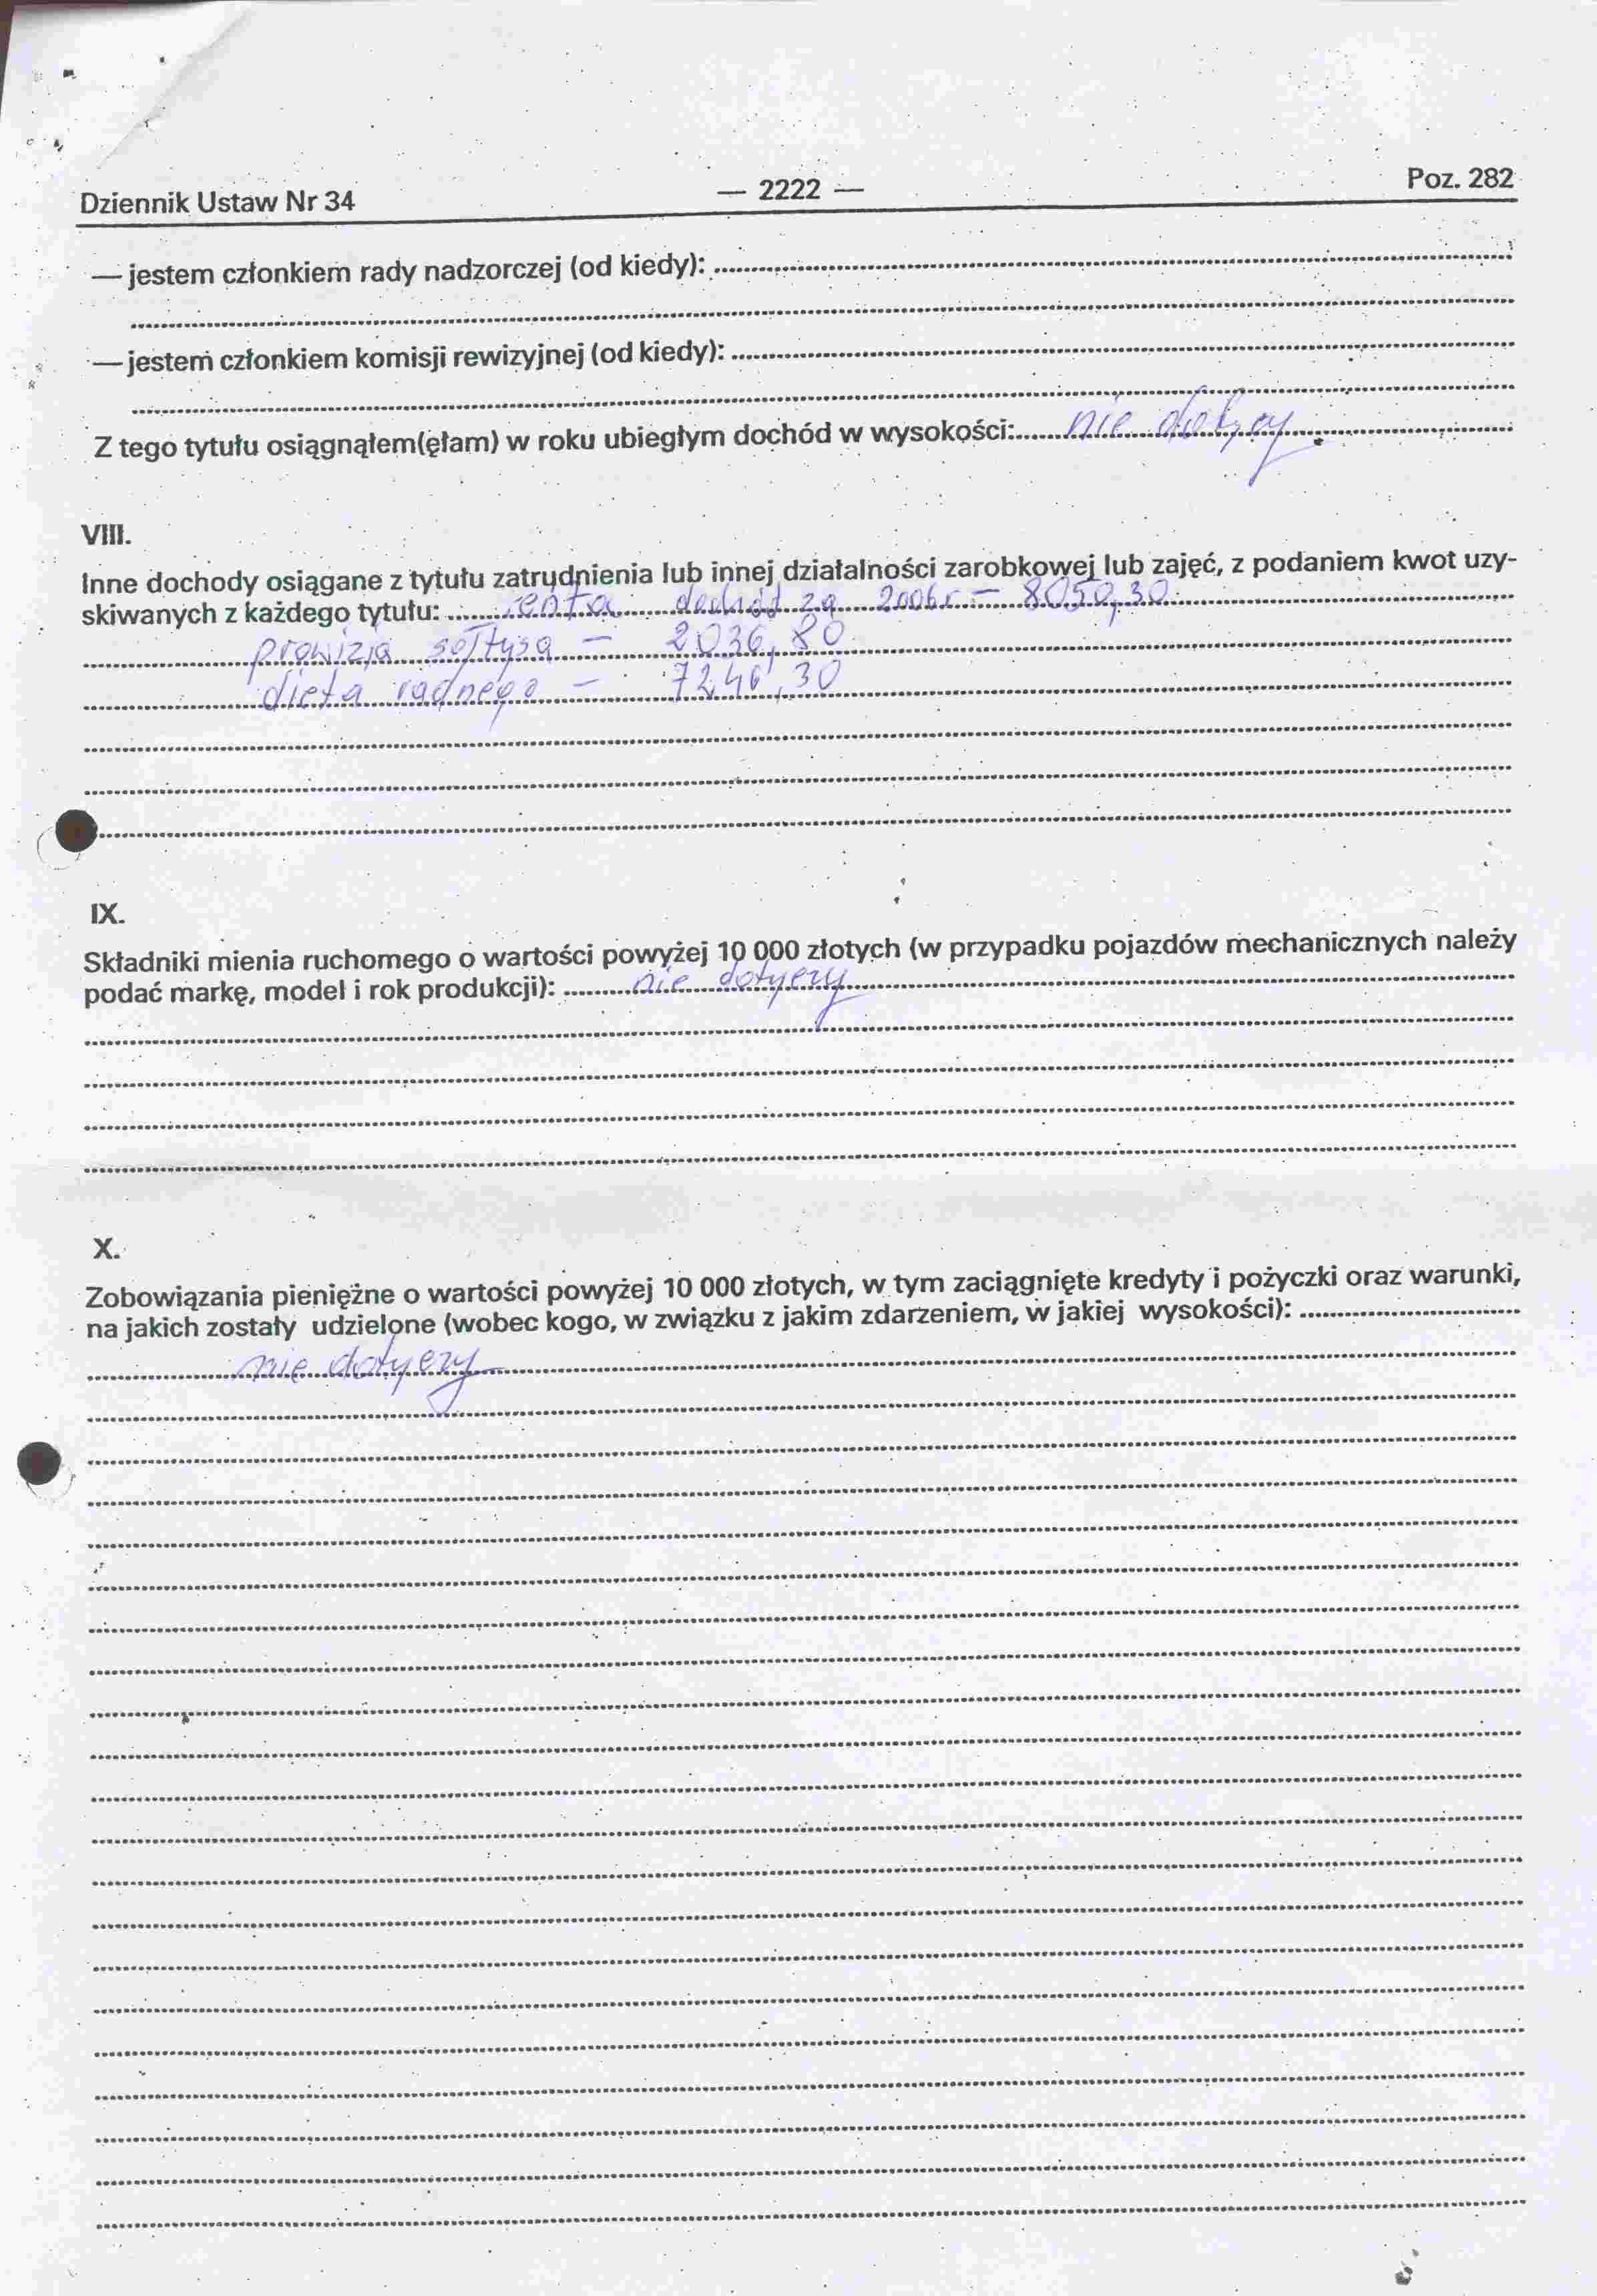 Dziennik Ustaw Nr 34 — 2222 — Poz. 282
— jestem członkiem rady nadzorczej (od kiedy):
— jestem członkiem komisji rewizyjnej (od kiedy):
Z tego tytułu osiągnąłem(ęłam) w roku ubiegłym dochód w wysokości: nie dotyczy
VIII.
Inne dochody osiągane z tytułu zatrudnienia lub innej działalności zarobkowej lub zajęć, z podaniem kwot uzy-
skiwanych z każdego tytułu: renta dochód za 2006 r – 8050,30
prowizja sołtysa – 2036,80
dieta radnego – 7246,30
IX.
Składniki mienia ruchomego o wartości powyżej 10 000 złotych (w przypadku pojazdów mechanicznych należy
podać markę, model i rok produkcji): nie dotyczy
X.
Zobowiązania pieniężne o wartości powyżej 10 000 złotych, w tym zaciągnięte kredyty i pożyczki oraz warunki,
na jakich zostały udzielone (wobec kogo, w związku z jakim zdarzeniem, w jakiej wysokości):
nie dotyczy